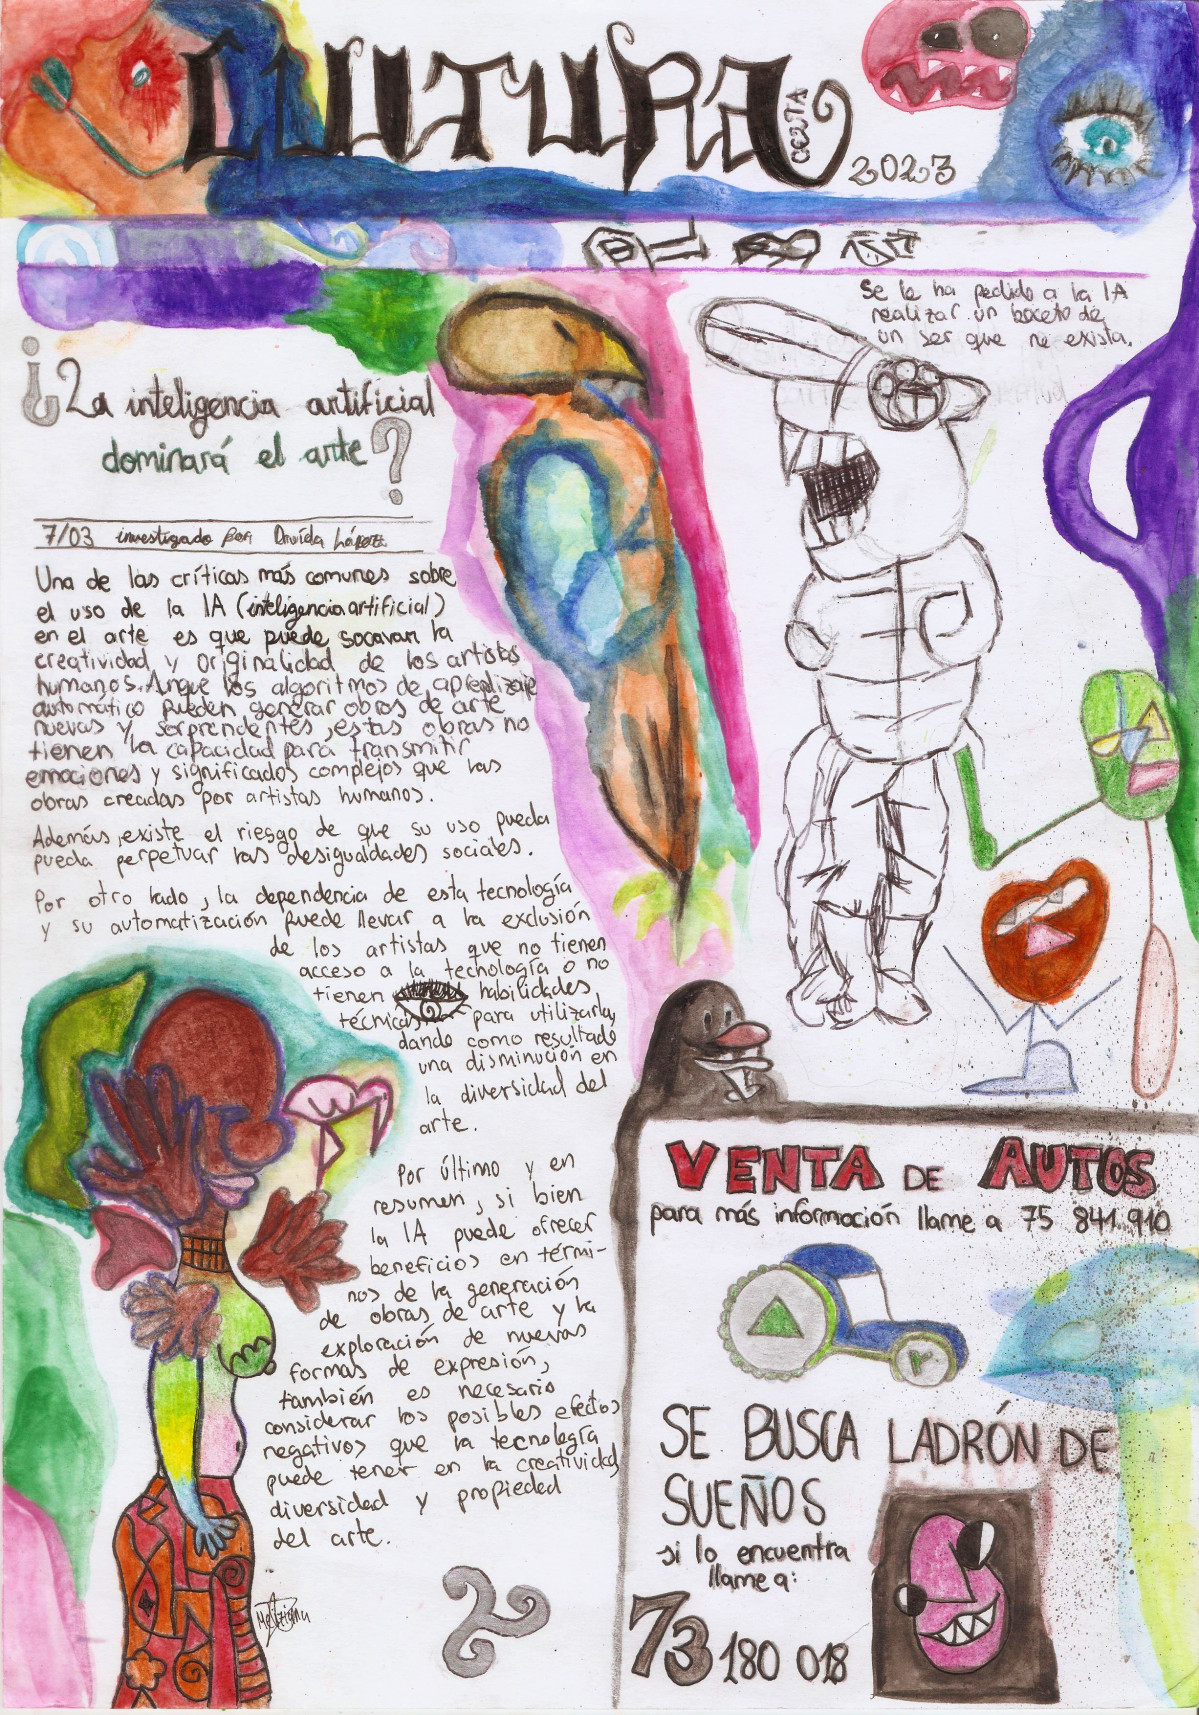 CULTURA
OESTA
2023
Se le ha pedido a la IA
realizar un boceto de
un ser que no exista.
¿La inteligencia artificial
dominará el arte?
7/03 investigado por Davida López
Una de las críticas más comunes sobre
el uso de la IA (inteligencia artificial)
en el arte es que puede socavar la
creatividad y originalidad de los artistas
humanos. Anque los algoritmos de aprendizaje
automático pueden generar obras de arte
nuevas y sorprendentes, estas obras no
tienen la capacidad para transmitir
emociones y significados complejos que las
obras creadas por artistas humanos.
Además, existe el riesgo de que su uso pueda
pueda perpetuar las desigualdades sociales.
Por otro lado, la dependencia de esta tecnología
y su automatización puede llevar a la exclusión
de los artistas que no tienen
acceso a la tecnología o no
tienen habilidades
técnicas para utilizarla,
dando como resultado
una disminución en
la diversidad del
arte.
Por último y en
resumen, si bien
la IA puede ofrecer
beneficios en térmi-
nos de la generación
de obras de arte y la
exploración de nuevas
formas de expresión,
también es necesario
considerar los posibles efectos
negativos que la tecnología
puede tener en la creatividad,
diversidad y propiedad
del arte.
VENTA DE AUTOS
para más información llame a 75 841 910
SE BUSCA LADRÓN DE
SUEÑOS
si lo encuentra
llame a:
73 180 018